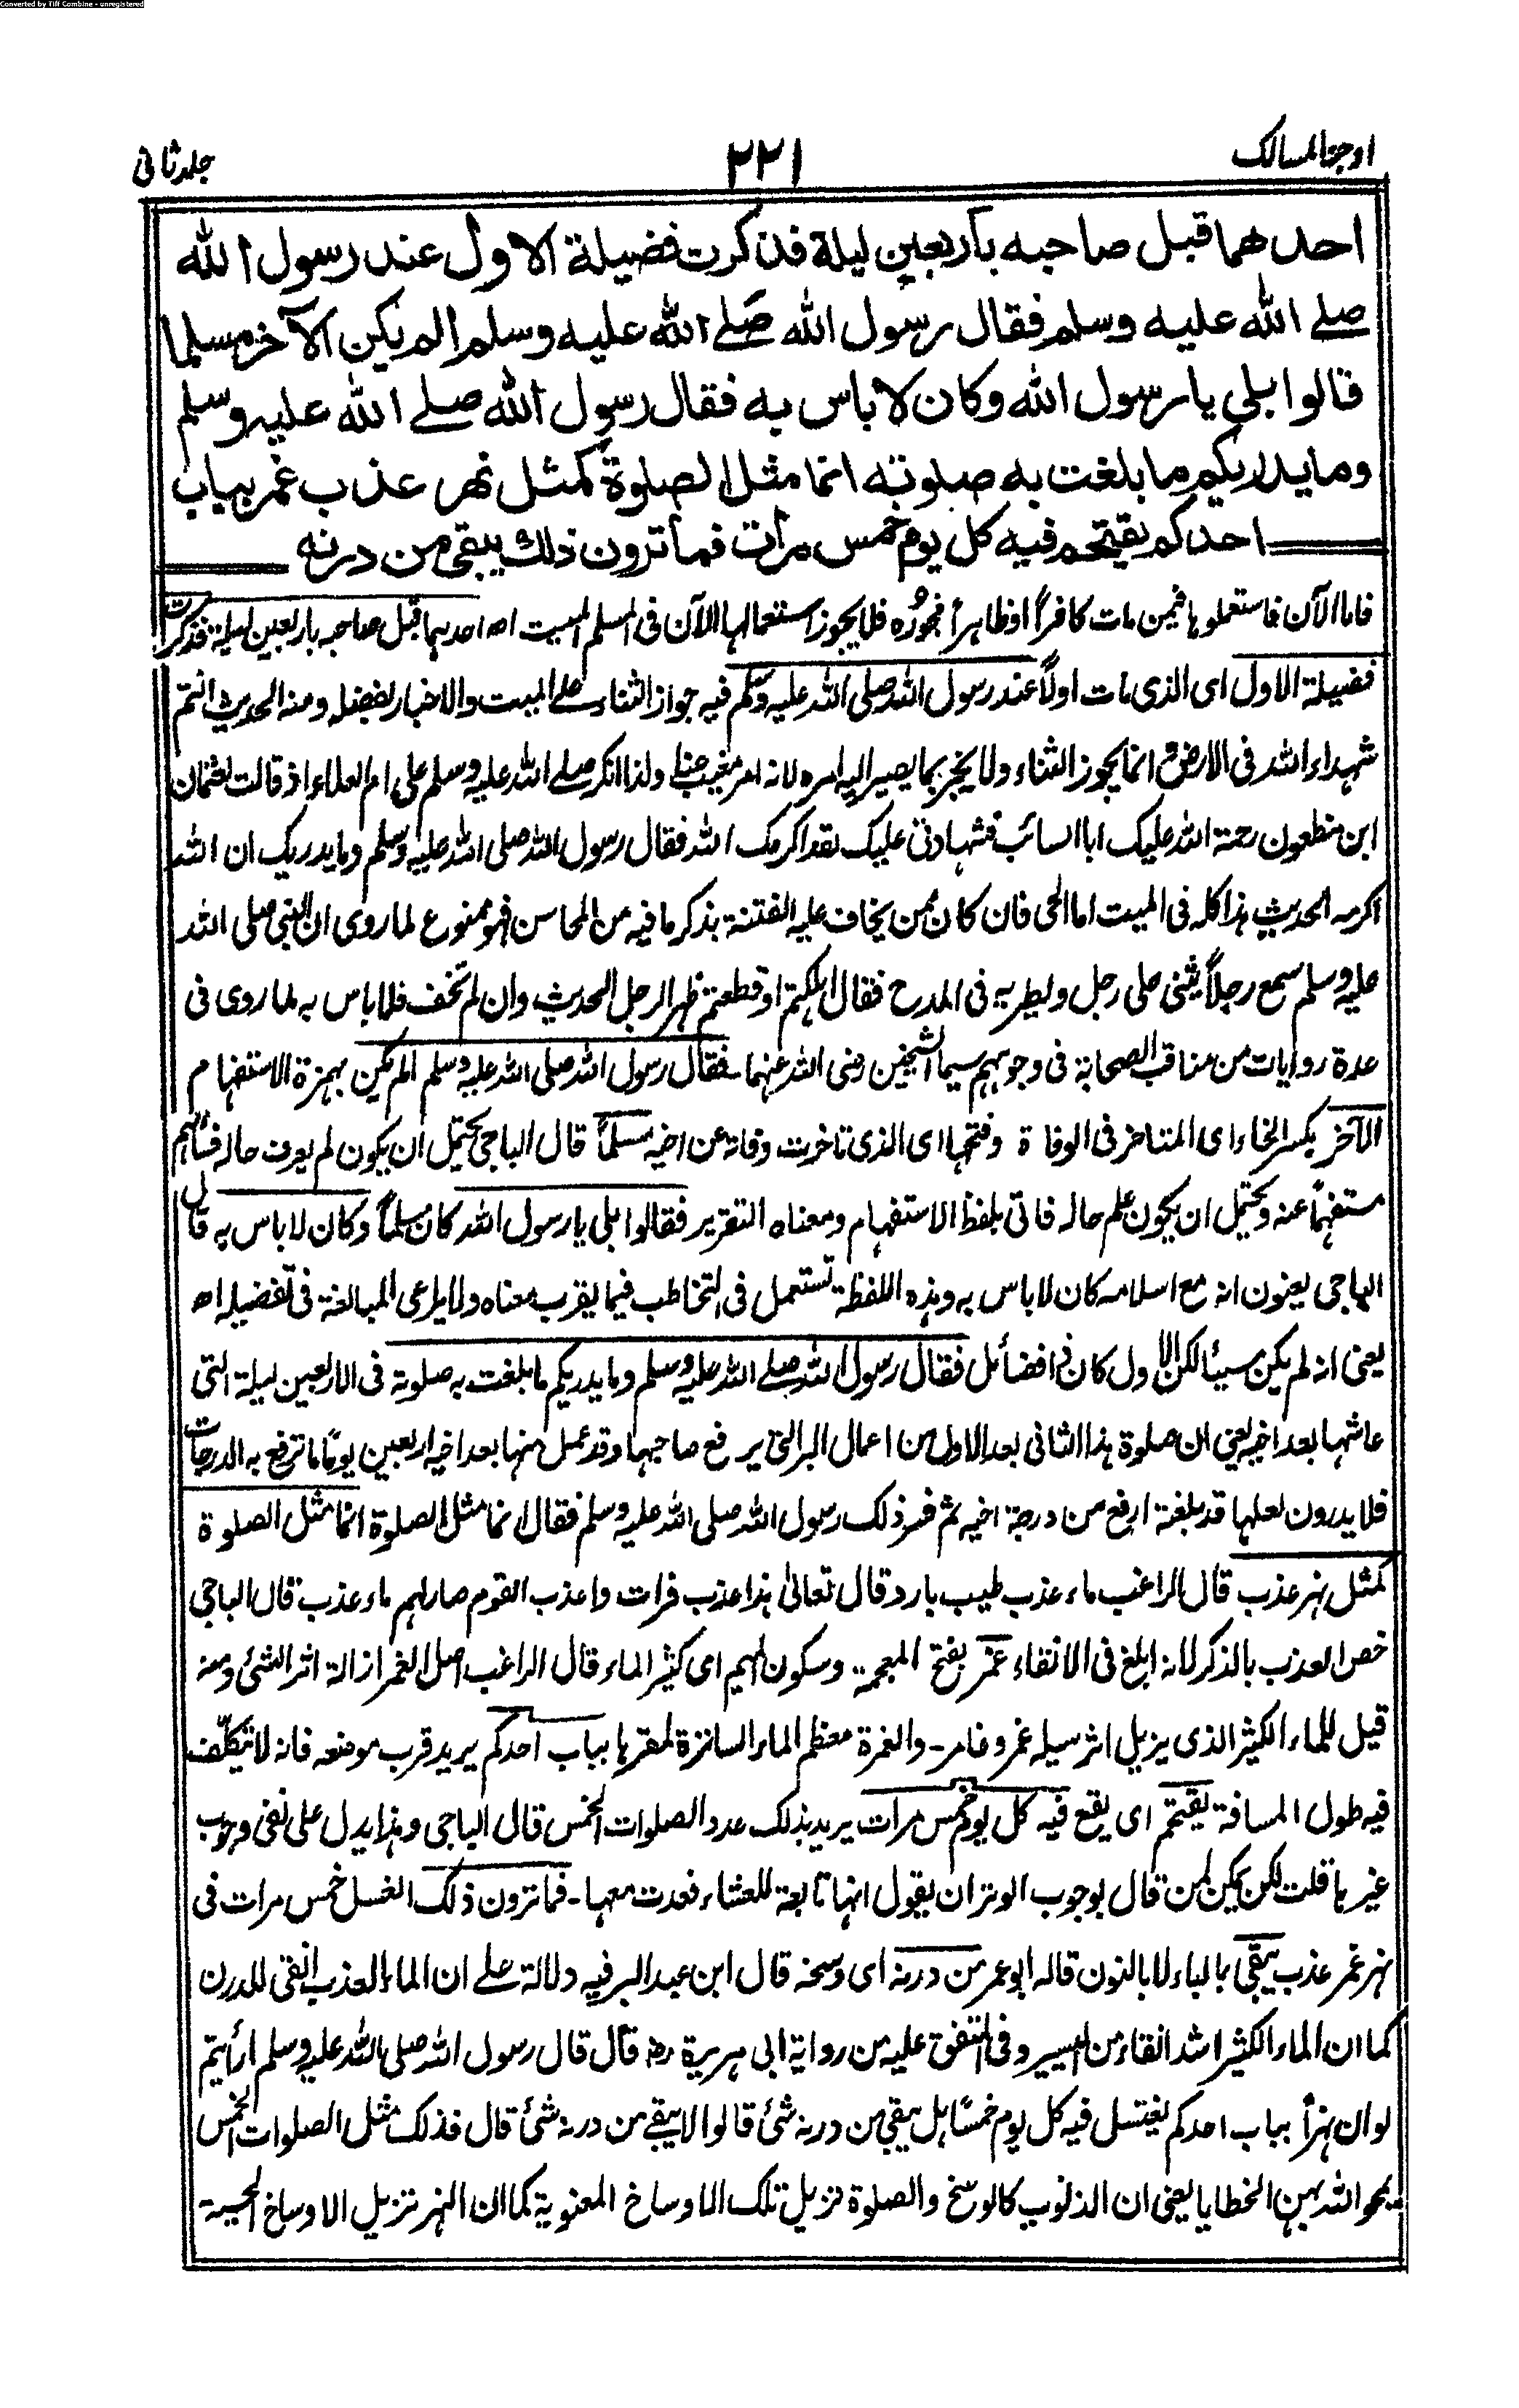 Converted by Tiff Combine - unregistered
اوجز المسالک
۲۲۱
جلد ثانی
احدهما قبل صاحبه باربعین لیلة فذکرت فضیلة الاول عند رسول الله
صلے الله علیه وسلم فقال رسول الله صلے الله علیه وسلم الم یکن الآخر مسلما
قالوا بلی یا رسول الله وکان لا باس به فقال رسول الله صلے الله علیه وسلم
وما یدریکم ما بلغت به صلوته انما مثل الصلوة کمثل نهر عذب غمر بباب
احدکم یقتحم فیه کل یوم خمس مرات فما ترون ذلك یبقی من درنه
فاما الآن فاستعملوہا فیمن مات کافراً او ظاہراً فجورُہ فلا یجوز استعمالہا الآن فی المسلم المیت اھ احدہما قبل صاحبہ باربعین لیلة فذکرت
فضیلة الاول ای الذی مات اولاً عند رسول اللہ صلی اللہ علیہ وسلم فیہ جواز الثناء علے المیت والاخبار بفضلہ ومنہ الحدیث انتم
شہداء اللہ فی الارض و انما یجوز الثناء ولا یخبر بما یصیر الیہ امرہ لانہ امر مغیب عنا ولذا انکر صلے اللہ علیہ وسلم علی ام العلاء اذ قالت لعثمان
ابن مظعون رحمة اللہ علیک ابا السائب فشہادتی علیک لقد اکرمک اللہ فقال رسول اللہ صلی اللہ علیہ وسلم وما یدریک ان اللہ
اکرمہ الحدیث ہذا کلہ فی المیت اما الحی فان کان ممن یخاف علیہ الفتنة بذکر ما فیہ من المحاسن فہو ممنوع لما روی ان النبی صلی اللہ
علیہ وسلم سمع رجلاً یثنی علی رجل ویطریہ فی المدح فقال اہلکتم او قطعتم ظہر الرجل الحدیث وان لم تخف فلا باس بہ لما روی فی
عدة روایات من مناقب الصحابة فی وجوہہم سیما الشیخین رضی اللہ عنہما۔ فقال رسول اللہ صلی اللہ علیہ وسلم الم یکن بہمزة الاستفہام
الآخر بکسر الخاء ای المتاخر فی الوفاة وفتحہا ای الذی تاخرت وفاتہ عن اخیہ مسلماً قال الباجی یحتمل ان یکون لم یعرف حالہ فسألہم
مستفہماً عنہ ویحتمل ان یکون علم حالہ فاتی بلفظ الاستفہام ومعناہ التقریر فقالوا بلی یا رسول اللہ کان مسلماً وکان لا باس بہ قال
الباجی یعنون انہ مع اسلامہ کان لا باس بہ وہذہ اللفظة تستعمل فی التخاطب فیما یقرب معناہ ولا یراعی المبالغة فی تفضیلہ اھ
یعنی انہ لم یکن سیئا لکن الاول کان فی افضائل فقال رسول اللہ صلے اللہ علیہ وسلم وما یدریکم ما بلغت بہ صلوتہ فی الاربعین لیلة التی
عاشہا بعد اخیہ یعنی ان صلوة ہذا الثانی بعد الاول من اعمال البر التی یرفع صاحبہا وقد عمل منہا بعد اخیہ اربعین یوماً ما ترفع بہ الدرجات
فلا یدرون لعلہا قد بلغتہ ارفع من درجة اخیہ ثم فسر ذلک رسول اللہ صلی اللہ علیہ وسلم فقال انما مثل الصلوة انما مثل الصلوة
کمثل نہر عذب قال الراغب ماء عذب طیب بارد قال تعالیٰ ہذا عذب فرات واعذب القوم صار لہم ماء عذب قال الباجی
خص العذب بالذکر لانہ ابلغ فی الانقاء غمر بفتح المعجمة وسکون المیم ای کثیر الماء قال الراغب اصل الغمر ازالة اثر الشئ ومنہ
قیل للماء الکثیر الذی یزیل اثر سیلہ غمر وغامر۔ والغمرة معظم الماء الساترة لمقرہا بباب احدکم یرید قرب موضعہ فانہ لا تتکلف
فیہ طول المسافة یقتحم ای یقع فیہ کل یوم خمس مرات یرید بذلک عدد الصلوات الخمس قال الباجی وہذا یدل علی نفی وجوب
غیرہا قلت لکن یمکن لمن قال بوجوب الوتر ان یقول انہا تابعة للعشاء فعدت معہا۔ فما ترون ذلک الغسل خمس مرات فی
نہر غمر عذب یبقی بالباء لا بالنون قالہ ابو عمر من درنہ ای وسخہ قال ابن عبد البر فیہ دلالة علے ان الماء العذب انقی للدرن
کما ان الماء الکثیر اشد انقاء من الیسیر وفی المتفق علیہ من روایة ابی ہریرة رضہ قال قال رسول اللہ صلی اللہ علیہ وسلم ارأیتم
لو ان نہراً بباب احدکم یغتسل فیہ کل یوم خمسا ہل یبقی من درنہ شئ قالوا لا یبقے من درنہ شئ قال فذلک مثل الصلوات الخمس
یمحو اللہ بہن الخطایا یعنی ان الذنوب کالوسخ والصلوة تزیل تلک الاوساخ المعنویة کما ان النہر تزیل الاوساخ الحسیة